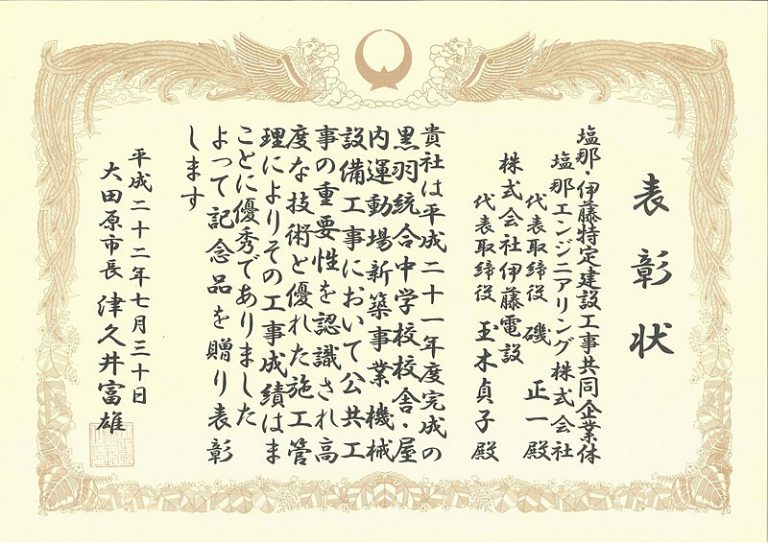 表彰状
塩那・伊藤特定建設工事共同企業体
塩那エンジニアリング株式会社
代表取締役 磯 正一殿
株式会社伊藤電設
代表取締役 玉木貞子殿
貴社は平成二十一年度完成の
黒羽統合中学校校舎・屋
内運動場新築事業機械
設備工事において公共工
事の重要性を認識され高
度な技術と優れた施工管
理によりその工事成績はま
ことに優秀でありました
よって記念品を贈り表彰
します
平成二十二年七月三十日
大田原市長 津久井富雄